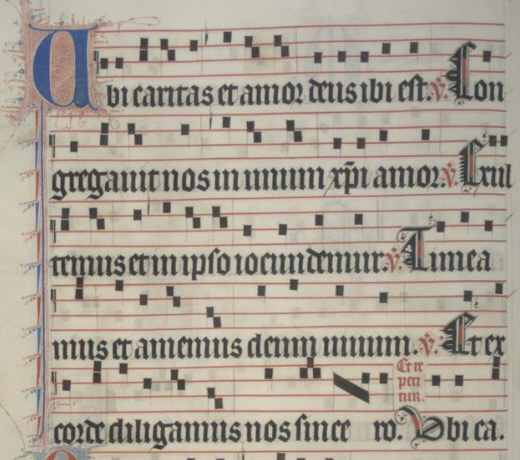 Ubi caritas et amor deus ibi est. ℣. Con
gregavit nos in unum xp̄i amor. ℣. Exul
temus et in ipso iocundemur. ℣. Timea
mus et amemus deum vivum. ℣. Et ex
Et re
peti
tur.
corde diligamus nos since ro. Ubi ca.